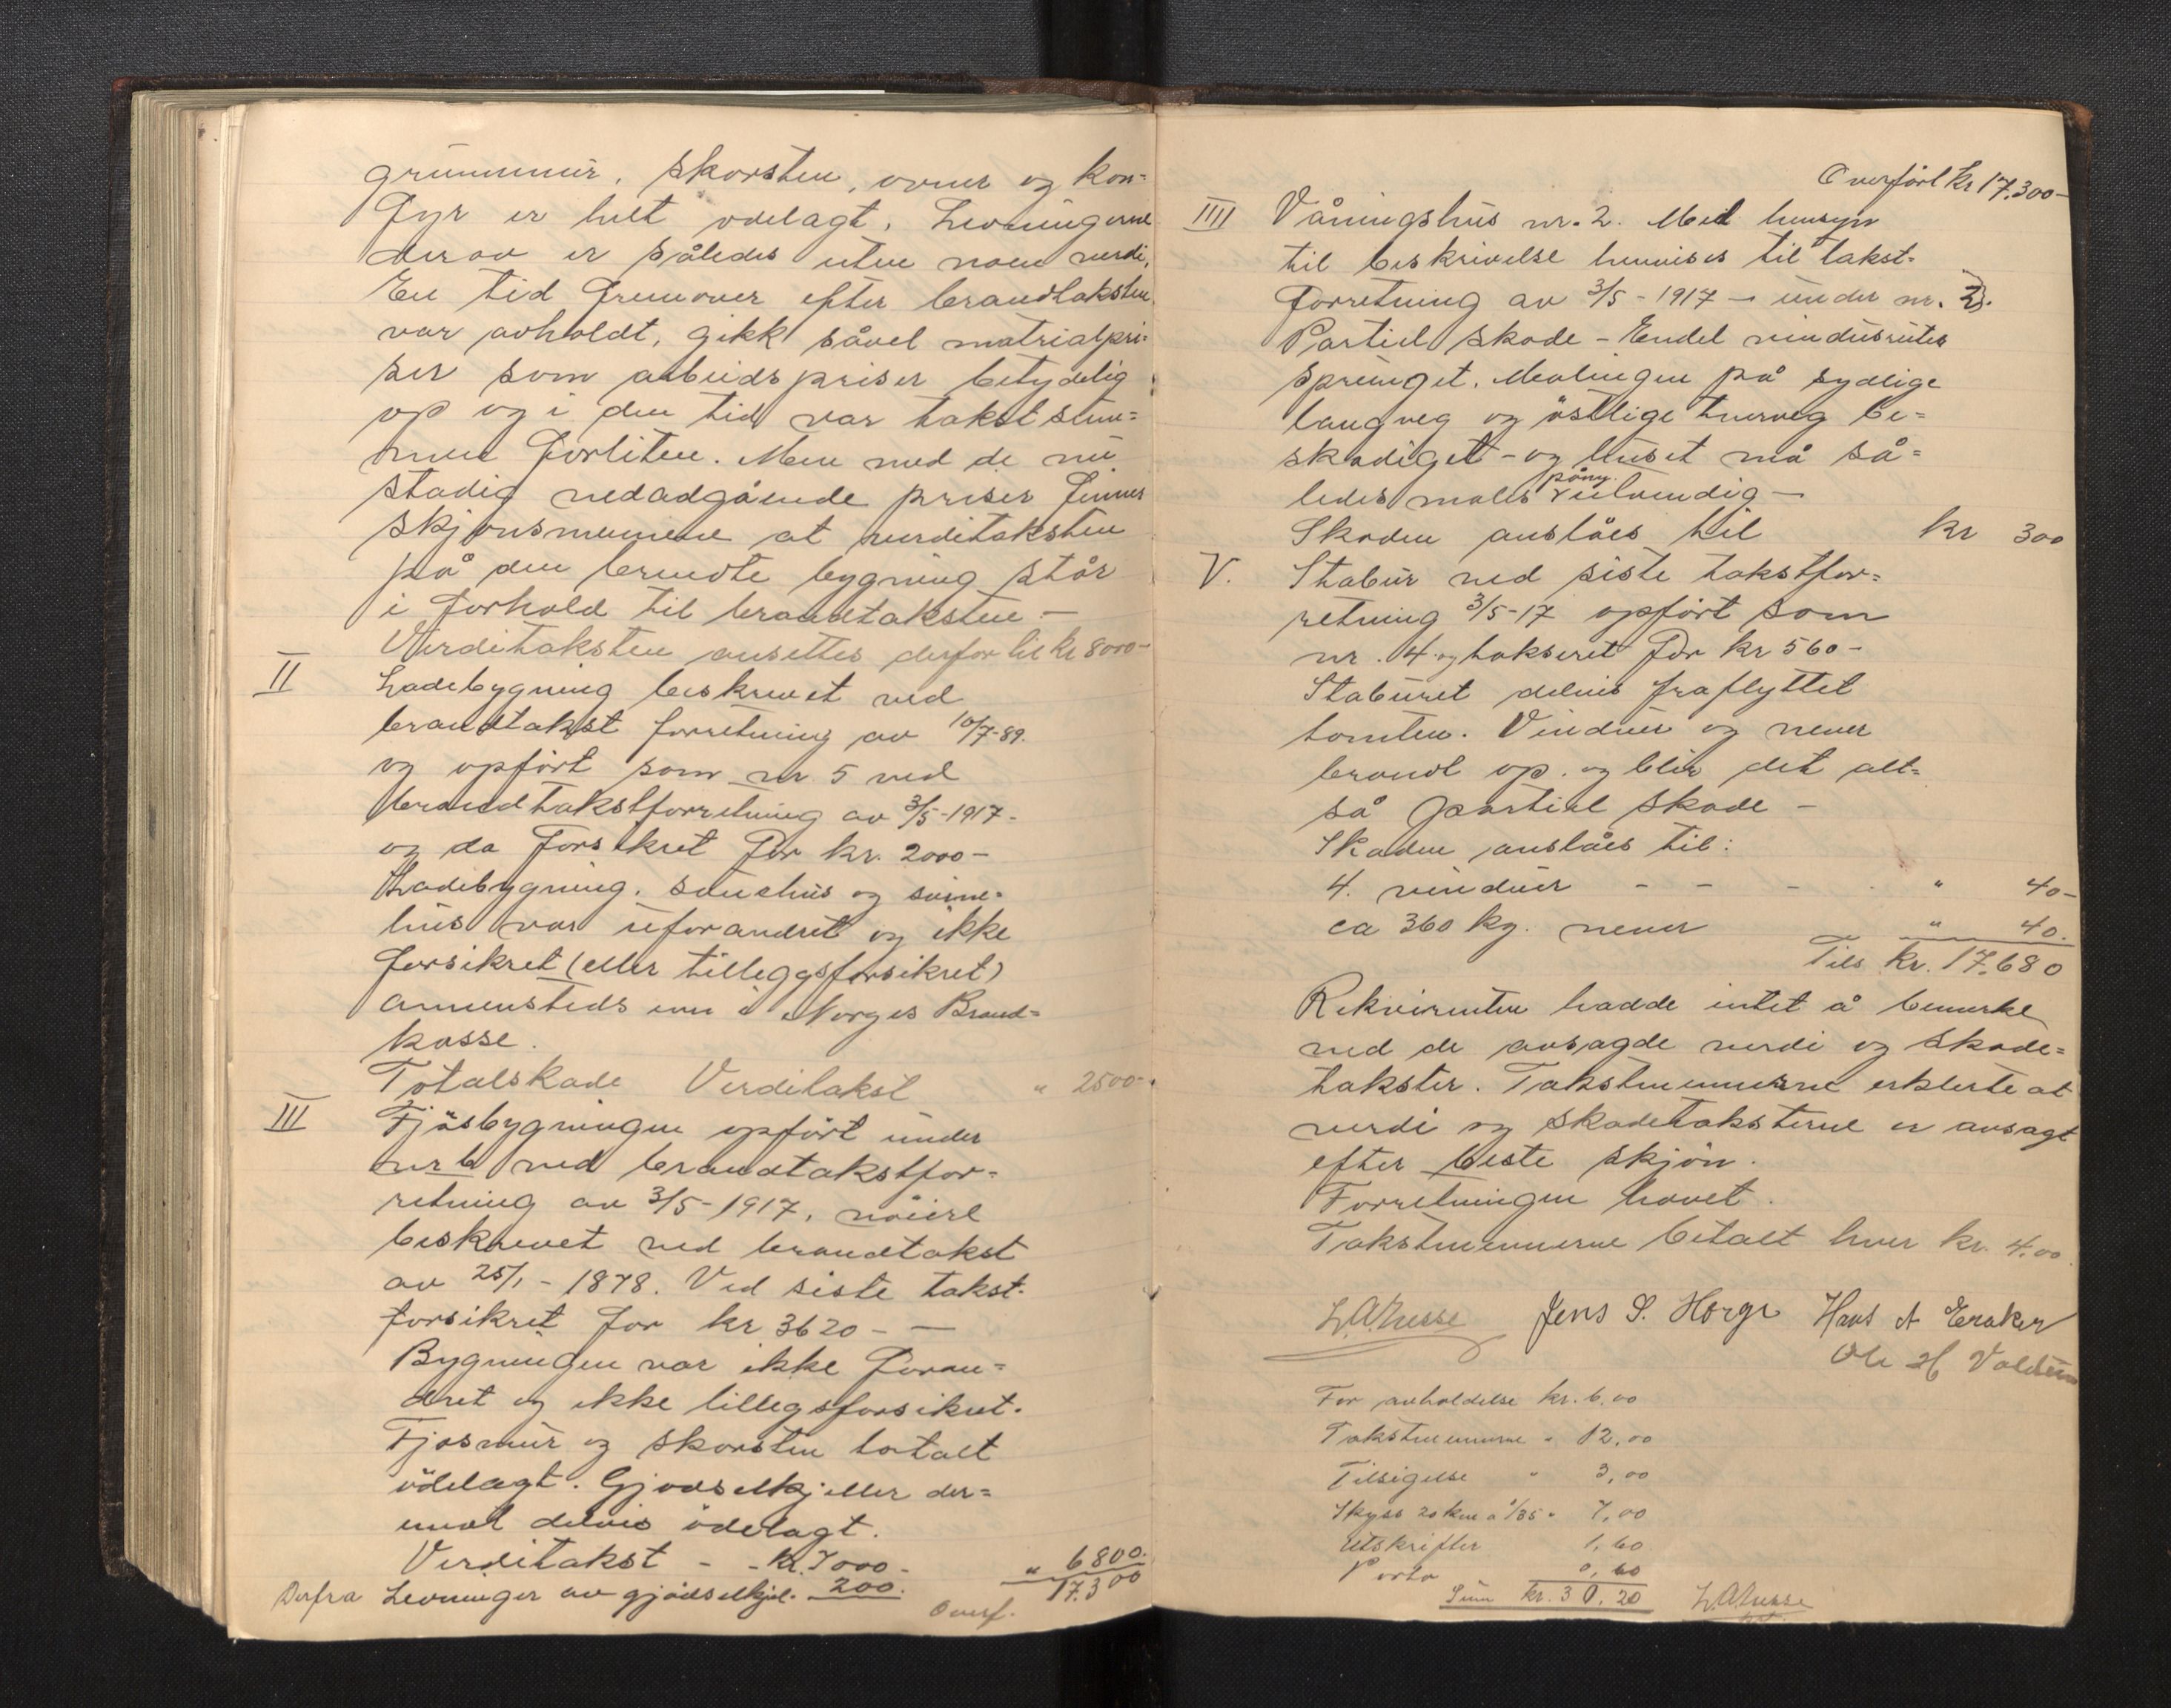 grunnmur, skorsten, ovner og kom-
fyr er helt ødelagt. Levningerne
derav er således uten noen verdi.
En tid fremover efter brandtaksten
var avholdt, gikk såvel matrialpri-
ser som arbeidspriser betydelig
op og i den tid var takstsum-
men forliten. Men med de nu
stadig nedadgående priser finner
skjønsmennene at verditaksten
på den brendte bygning står
i forhold til brandtaksten. —
Verditaksten ansettes derfor til kr 8000-
II Ladebygning beskrevet ved
brandtakst forretning av 10/7-89.
og opført som nr. 5 ved
brandtakstforretning av 3/5-1917-
og da forsikret for kr. 2000-
Ladebygning, sauehus og svine-
hus var uforandret og ikke
forsikret (eller tilleggsforsikret)
annensteds enn i Norges Brand-
kasse.
Totalskade Verditakst " 2500-
III Fjøsbygningen opført under
nr 6 ved brandtakstfor-
retning av 3/5-1917, nøiere
beskrevet ved brandtakst
av 25/1-1878. Ved siste takst-
forsikret for kr 3620 - —
Bygningen var ikke foran-
dret og ikke tillegsforsikret.
Fjøsmur og skorsten totalt
ødelagt. Gjødselkjeller der-
imot delvis ødelagt.
Verditakst - - kr. 7000- " 6800.
Derfra Levninger av gjødselkjel. 200. 17.300
Overf.
Overført kr 17.300-
IIII Våningshus nr. 2. Med hensyn
til beskrivelse henvises til takst-
forretning av 3/5-1917 - under nr. 2.
Partiel skade - Endel vindusruter
sprunget. Malingen på sydlige
langveg og østlige tverveg be-
skadiget - og huset må så-
ledes males påny utvendig —
Skaden anslåes til kr 300
V. Stabur ved siste takstfor-
retning 3/5-17 opført som
nr. 4 og taksert for kr 560-
Staburet delvis fraflyttet
tomten. Vinduer og never
brendt op. og blir det alt-
så partiel skade -
Skaden anslåes til:
4. vinduer - - - " 40-
ca 360 kg. never " 40.
Tils kr. 17.680
Rekvirenten hadde intet å bemerke
ved de avsagde verdi og skade-
takster. Takstmennene erklerte at
verdi og skadetaksterne er avsagt
efter beste skjøn.
Forretningen hevet.
Takstmennerne betalt hver kr. 4.00
Jens S. Horge Hans A Eraker
Ole H
For avholdelse kr. 6,00
Takstmennene " 12,00
Tilsigelse " 3,00
Skyss 20 km a 0/35 " 7,00
Utskrifter 1,60
Porto 0,60
Sum kr. 30.20